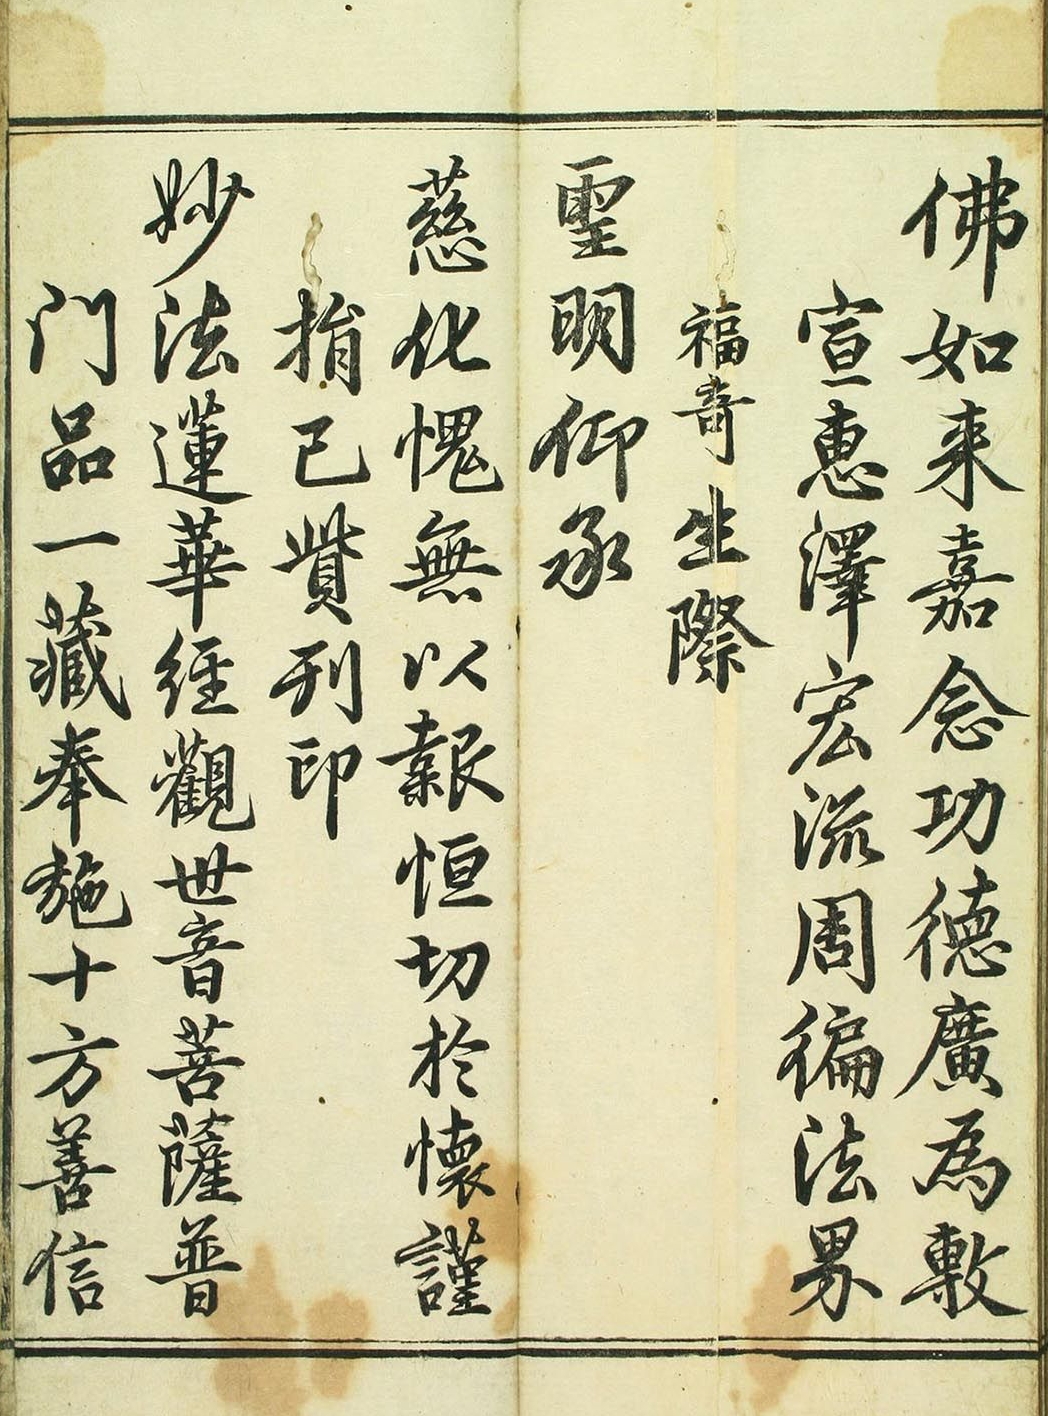 佛如来嘉念功德廣為敷
宣惠澤宏流周徧法界
福竒生際
聖明仰承
慈化愧無以報恒切於懷謹
捐己貲刊印
妙法蓮華經觀世音菩薩普
门品一藏奉施十方善信